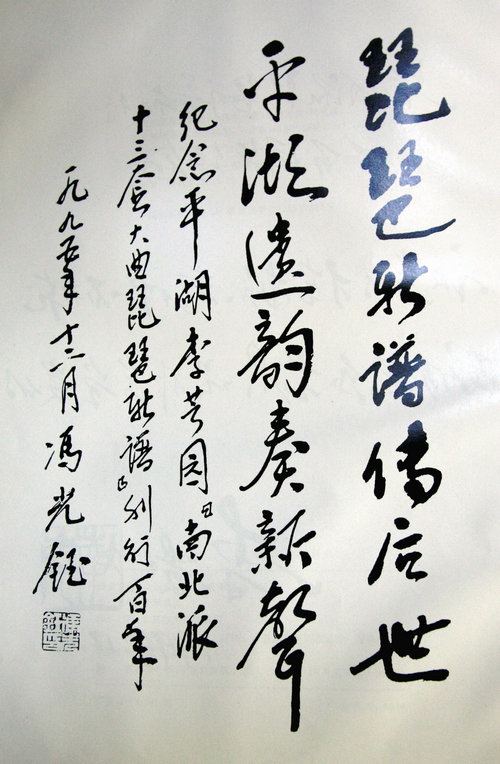 琵琶新谱傳后世
平湖遗韵奏新聲
纪念平湖李芳园『南北派
十三套大曲琵琶新谱』刊行百年
一九九五年十二月 冯光钰